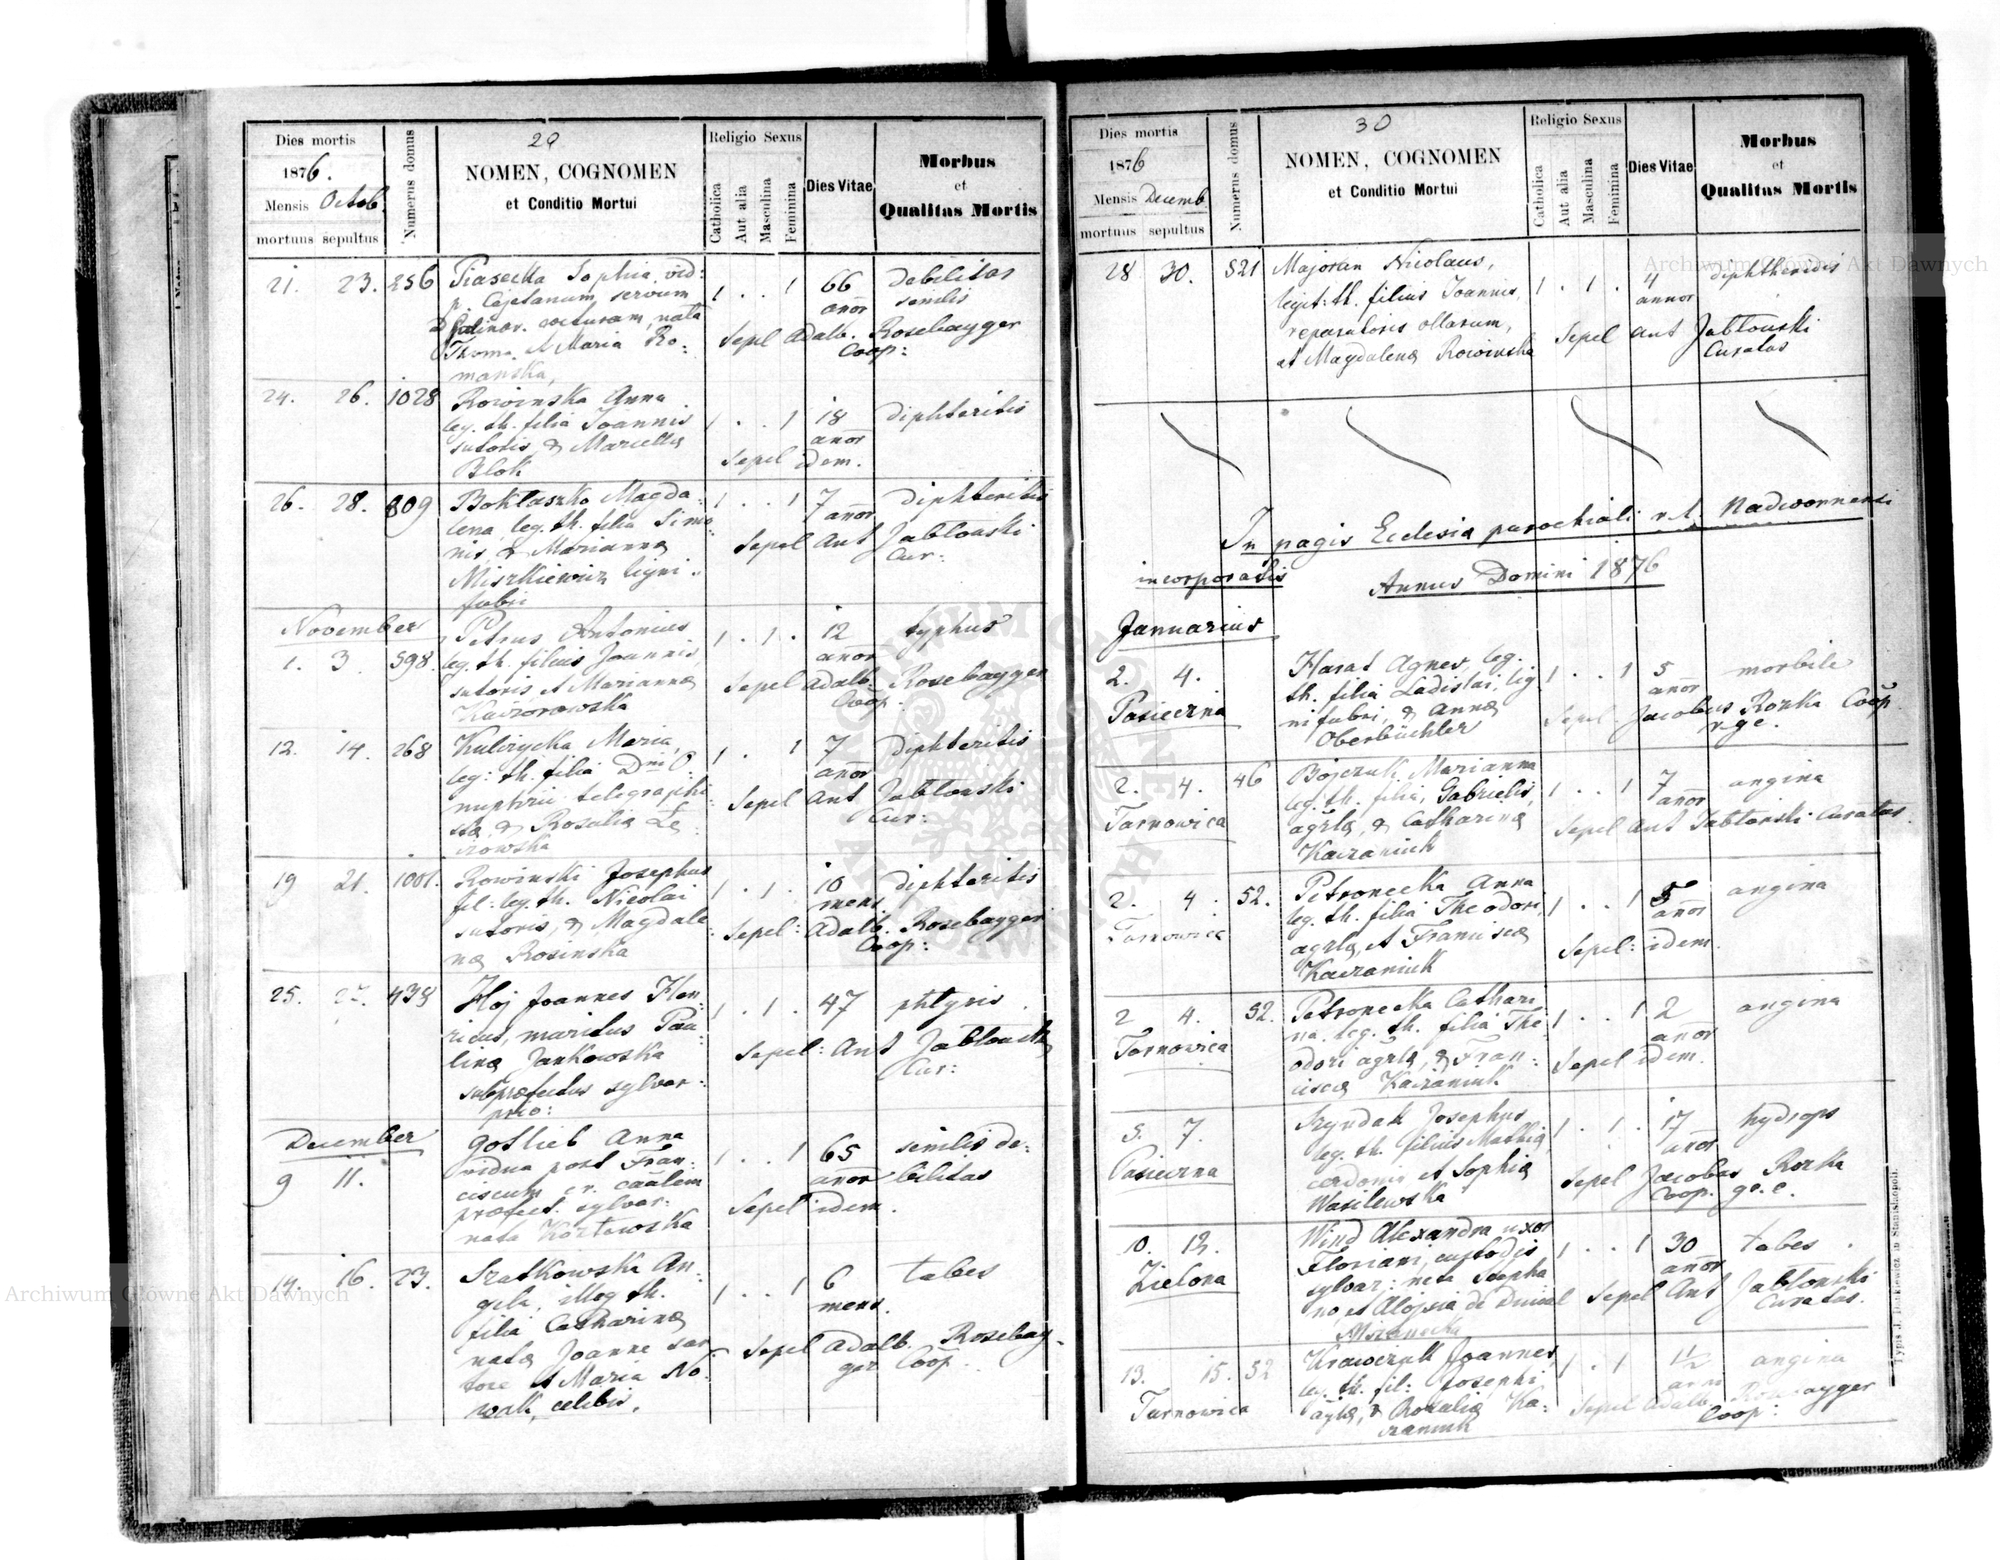 29
Dies mortis
1876.
Mensis Octob.
mortuus sepultus
Numerus domus
NOMEN, COGNOMEN
et Conditio Mortui
Religio Sexus
Catholica
Aut alia
Masculina
Feminina
Dies Vitae
Morbus
et
Qualitas Mortis
21. 23. 256 Piasecka Sophia vid:
p. Cajetanum servum
nata
Thoma et Maria Ro:
manska,
1 . . 1 66 anor Debilitas
senilis
Sepel Adalb. Rosebayger
Coop:
24. 26. 1028 Rowinska Anna
leg. th. filia Joannis
sutoris & Marcella
Blok
1 . . 1 18 anor diphteritis
Sepel idem.
26. 28. 809 Boklaszko Magda
lena, leg. th. filia Simo
nis & Marianna
Miszkiewicz ligni
fabri
1 . . 1 7 anor diphteritis
Sepel Ant Jabłonski
Cur:
November
1. 3 598. Petrus Antonius
leg. th. filius Joannis,
sutoris et Marianna
Kaczorowska
1 . 1 . 12 anor typhus
Sepel Adalb. Rosebayger
Coop.
12. 14. 268 Kulczycka Maria,
leg: th. filia Dni O:
nuphrii telegraphi
sta, & Rosalia Le
zowska
1 . 1 7 anor diphteritis
Sepel Ant Jabłonski
Cur:
19 21. 1001. Rowinski Josephus
fil: leg. th. Nicolai
sutoris, & Magdale
na Rosinska
1 . 1 . 10 mens. diphteritis
Sepel: Adalb. Rosebayger
Coop:
25. 27. 438 Hoj Joannes Hen
ricus, maritus Pau
lina Jankowska
subpraefectus sylvar:
1 . 1 . 47 phtysis
Sepel: Ant Jabłonski
Cur:
December
9 11. Gotlieb Anna
vidua post Fran
ciscum
praefect. sylvar:
nata Kozłowska
1 . . 1 65 anor senilis de:
bilitas
Sepel idem.
14. 16. 23. Szatkowska An
gela, illeg th.
filia Catharina
nata Joanne sar
tore et Maria No
wak, celibis.
1 . . 1 6 mens. tabes
Sepel Adalb. Rosebay
ger Coop.
30
Dies mortis
1876
Mensis Decemb
mortuus sepultus
Numerus domus
NOMEN, COGNOMEN
et Conditio Mortui
Religio Sexus
Catholica
Aut alia
Masculina
Feminina
Dies Vitae
Morbus
et
Qualitas Mortis
28 30. 521 Majoran Nicolaus,
legit: th. filius Joannis,
reparatoris ollarum,
et Magdalena Rowinska
1 . 1 . 4 annor diphtheritis
Sepel Ant Jabłonski
Curatus
In pagis Ecclesia parochiali r. l. Nadwornensi
incorporatis Annus Domini 1876
Januarius
2. 4.
Pasieczna
Harat Agnes, leg.
th. filia Ladislai, lig
ni fabri, & Anna
Oberbüchler
1 . . 1 5 anor morbile
Sepel. Jacobus Rozka Coop
r. g. c.
2. 4. 46
Tarnowica
Bojczuk Marianna
leg. th. filia, Gabrielis,
agrla, & Catharina
Kaczaniuk
1 . . 1 7 anor angina
Sepel Ant Jabłonski Curatus.
2. 4. 52.
Tarnowica
Petronecka Anna
leg. th. filia Theodori,
agrla, et Francisca
Kaczaniuk
1 . . 1 5 anor angina
Sepel: idem.
2 4. 52.
Tarnowica
Petronecka Cathari
na. leg. th. filia The
odori agrla, & Fran
cisca Kaczaniuk
1 . . 1 2 anor angina
Sepel idem.
5. 7.
Pasieczna
Szyndak Josephus,
leg. th. filius Mathia,
cerdonis et Sophia
Wasilewska
1 . 1 . 17 anor hydrops
Sepel Jacobus Rozka
Coop. gr. c.
10. 12.
Zielona
Wind Alexandra uxor
Floriani, custodis
sylvar: nata Stepha
no, et Aloisia de
1 . . 1 30 anor tabes
Sepel Ant Jabłonski
Curatus.
13. 15. 52
Tarnowica
Krawczuk Joannes,
leg. th. fil: Josephi
agrla, & Rozalia Ka:
czaniuk
1 . 1 1½ anni angina
Sepel Adalb. Rosebayger
Coop:
Typis J. Dankiewicz in Stanislaopoli.
Archiwum Główne Akt Dawnych
Archiwum Główne Akt Dawnych